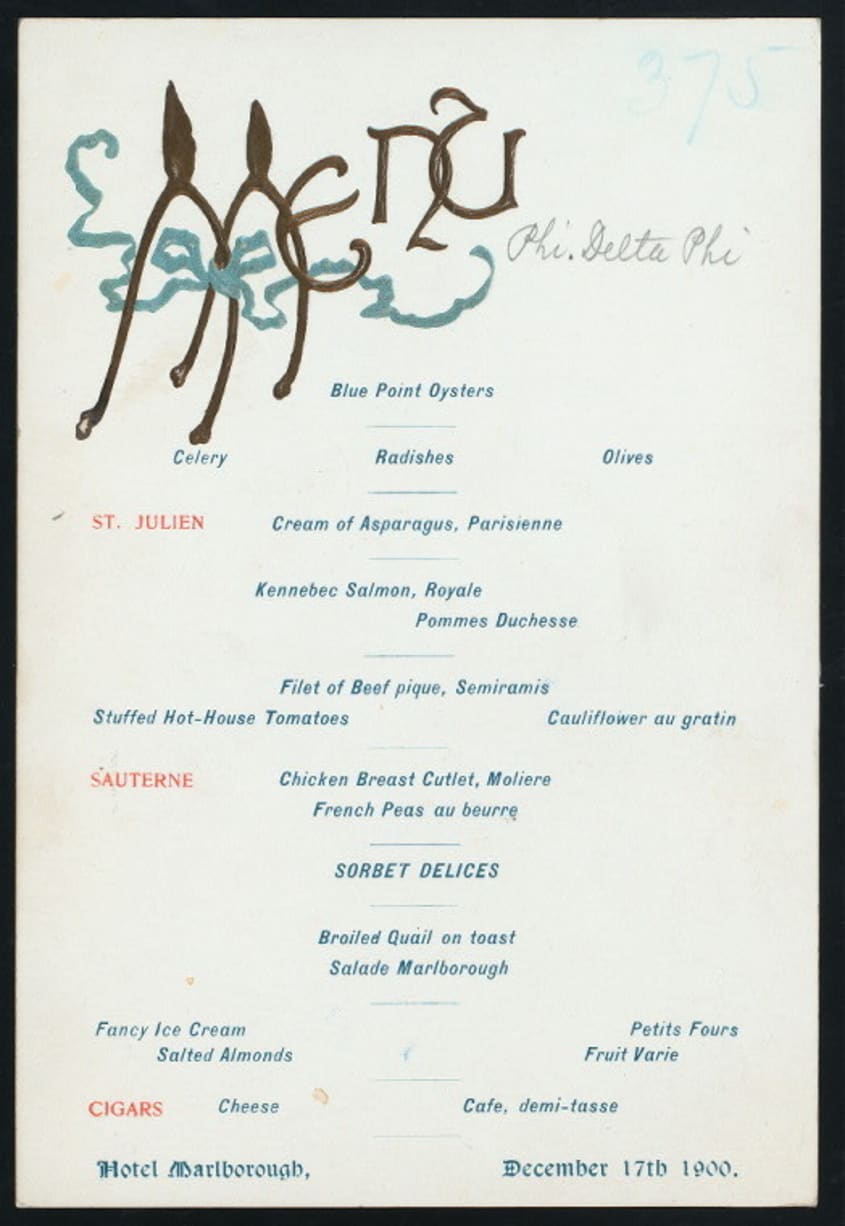 375
Menu
Phi. Delta Phi
Blue Point Oysters
Celery Radishes Olives
ST. JULIEN Cream of Asparagus, Parisienne
Kennebec Salmon, Royale
Pommes Duchesse
Filet of Beef pique, Semiramis
Stuffed Hot-House Tomatoes Cauliflower au gratin
SAUTERNE Chicken Breast Cutlet, Moliere
French Peas au beurre
SORBET DELICES
Broiled Quail on toast
Salade Marlborough
Fancy Ice Cream Petits Fours
Salted Almonds Fruit Varie
CIGARS Cheese Cafe, demi-tasse
Hotel Marlborough, December 17th 1900.